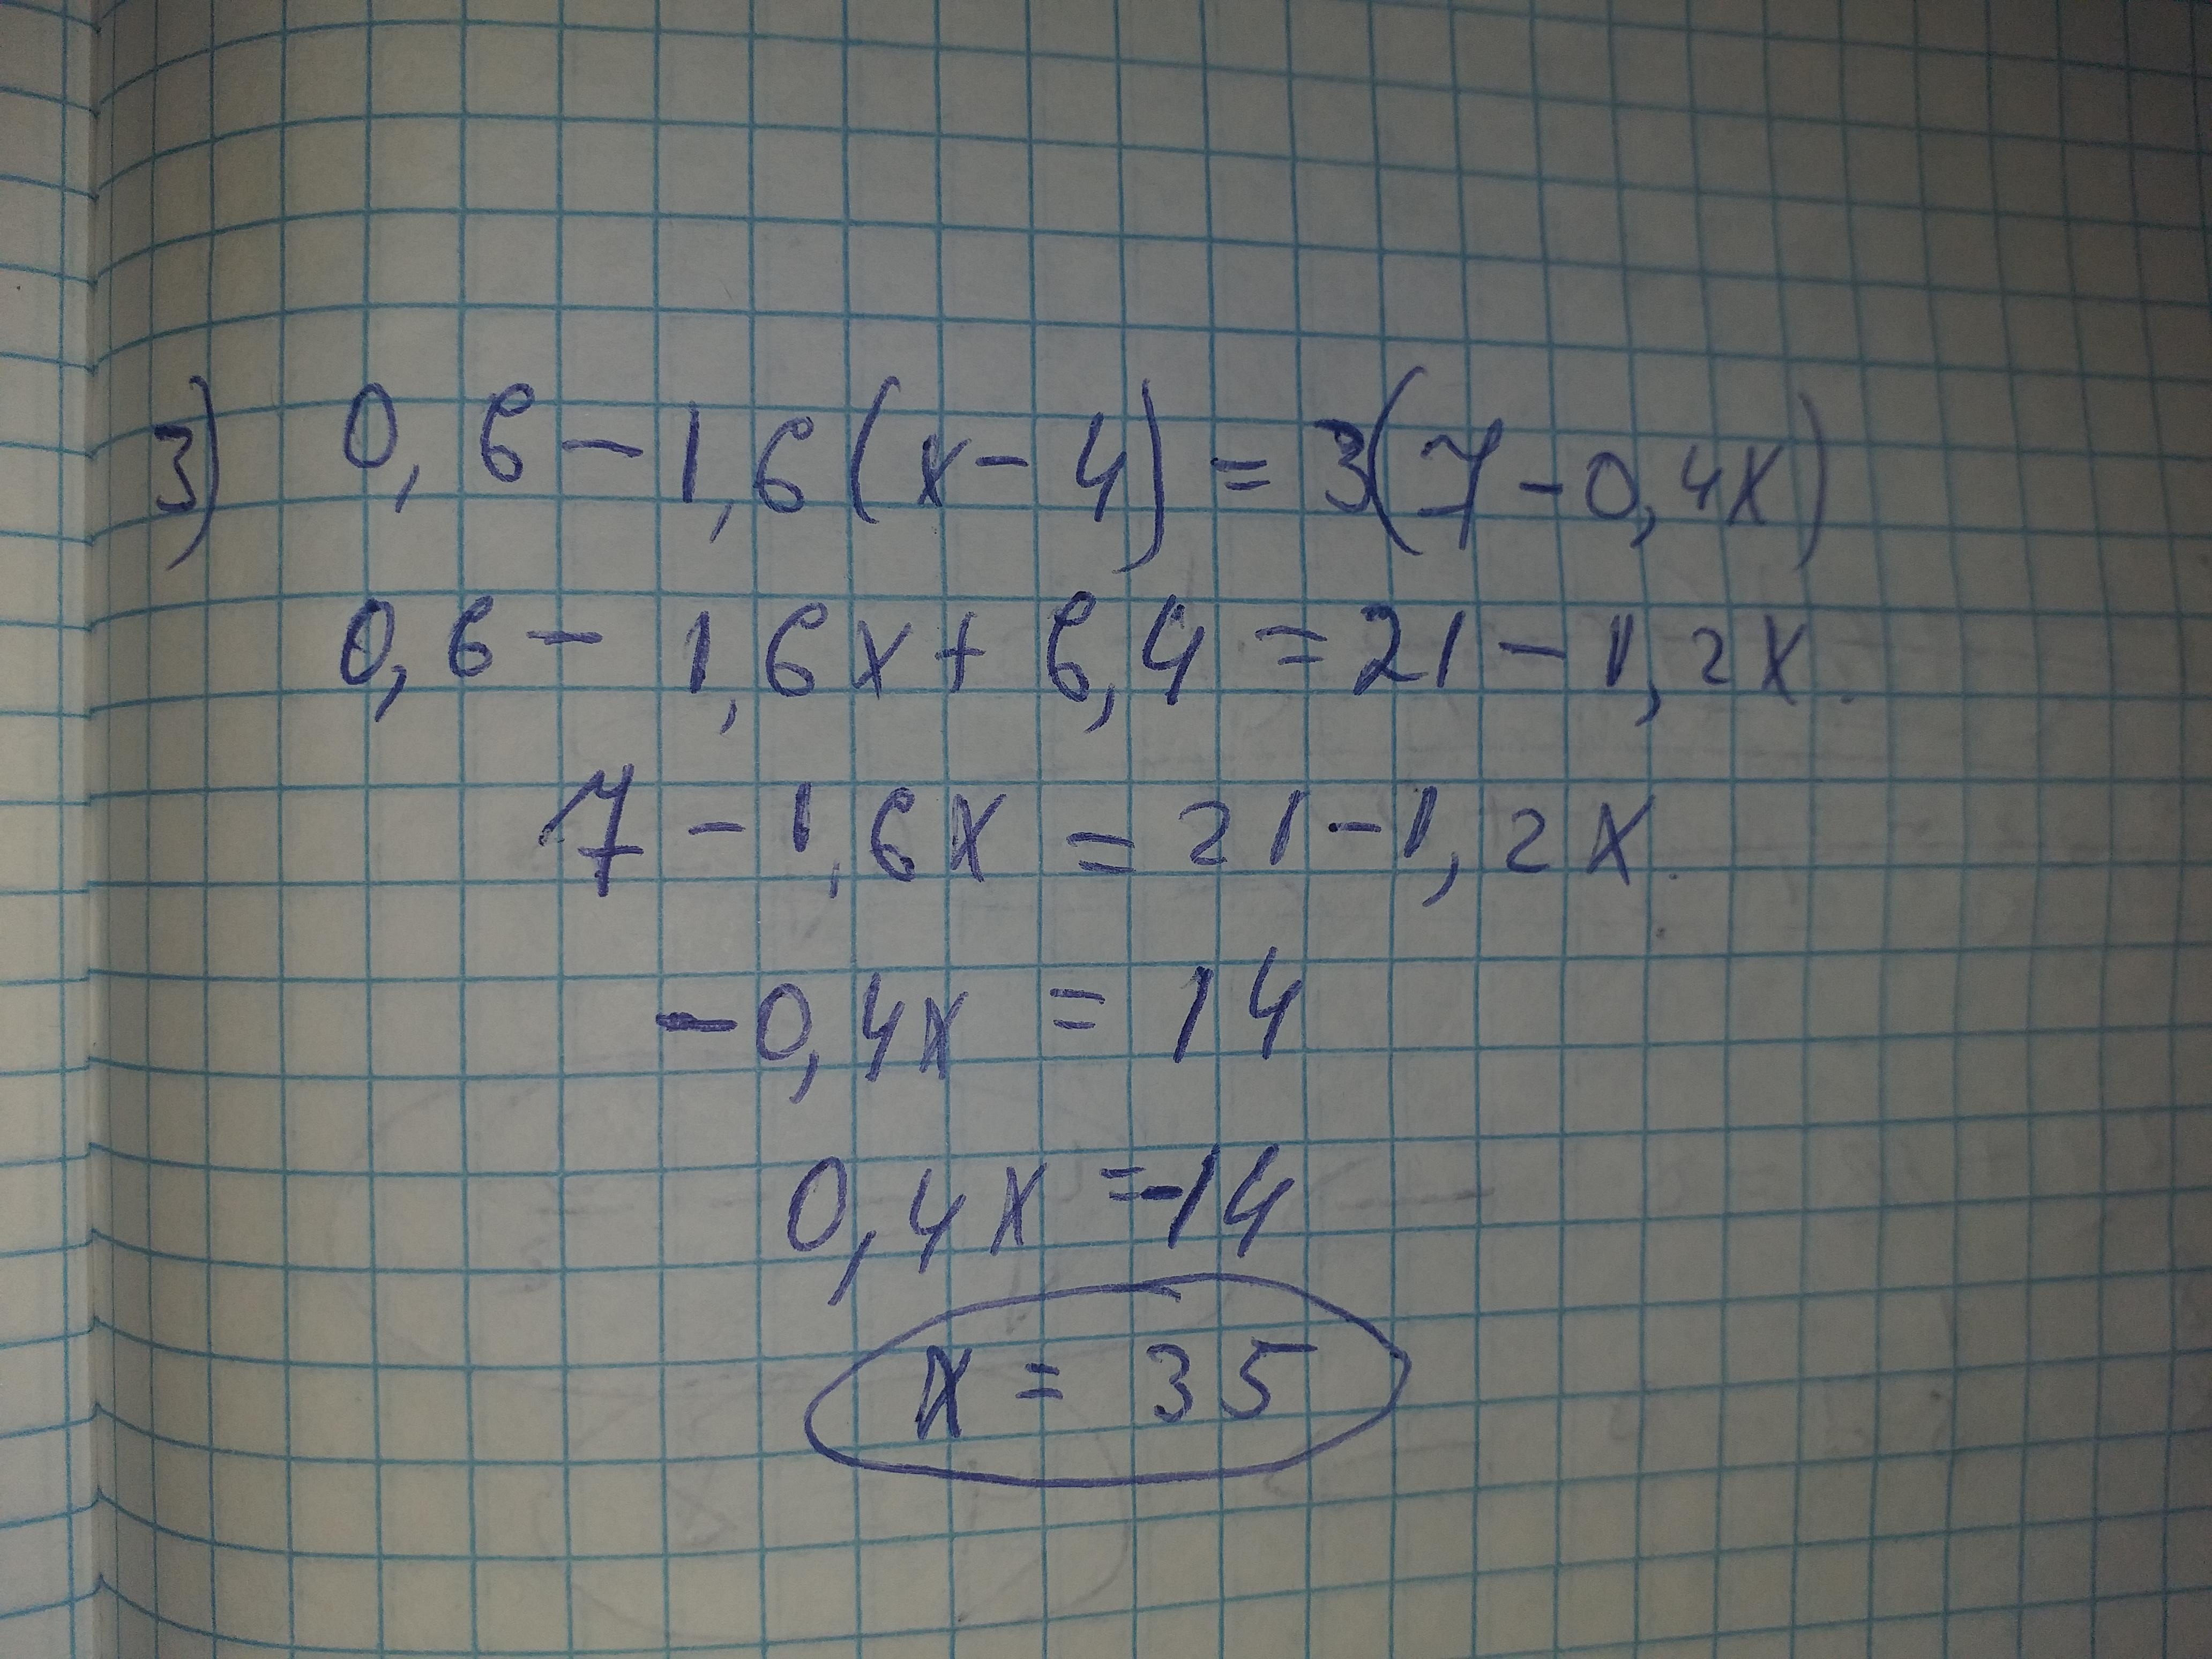 3) 0,6 - 1,6(x - 4) = 3(7 - 0,4x)
0,6 - 1,6x + 6,4 = 21 - 1,2x.
7 - 1,6x = 21 - 1,2x.
-0,4x = 14
0,4x = -14
x = 35